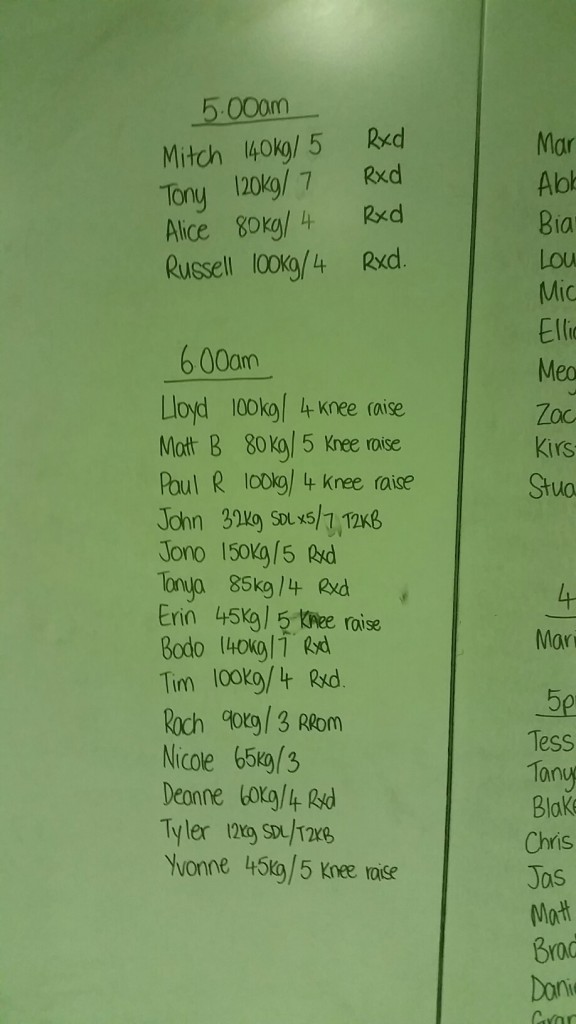 5.00am
Mitch 140kg/ 5 Rxd
Tony 120kg/ 7 Rxd
Alice 80kg/ 4 Rxd
Russell 100kg/4 Rxd.
6.00am
Lloyd 100kg/ 4 Knee raise
Matt B 80kg/5 Knee raise
Paul R 100kg/ 4 Knee raise
John 32kg SDL x5/7 T2KB
Jono 150kg/5 Rxd
Tanya 85kg/4 Rxd
Erin 45kg/ 5 Knee raise
Bodo 140kg/7 Rxd
Tim 100kg/4 Rxd.
Rach 90kg/3 RROM
Nicole 65kg/3
Deanne 60kg/4 Rxd
Tyler 12kg SDL/T2KB
Yvonne 45kg/5 Knee raise
Mar
Abb
Bia
Lou
Mic
Elli
Meg
Zac
Kirs
Stua
4
Mar
5p
Tess
Tany
Blake
Chris
Jas
Matt
Brad
Dani
Gran